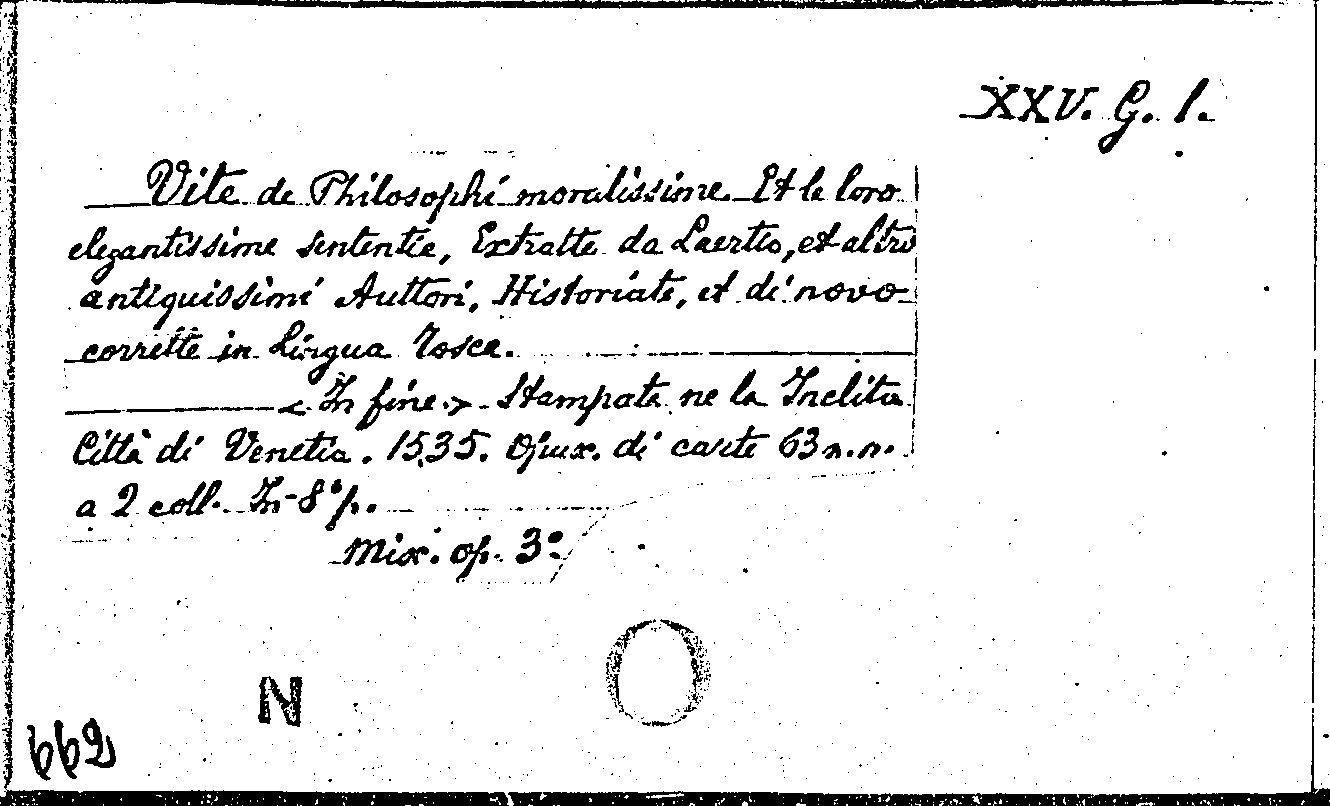 XXV. G. 1.
Vite de Philosophi moralissime. Et le loro
elegantissime sententie, Extratte da Laertio, et altri
antiquissimi Auttori, Historiate, et di novo
corrette in Lingua Tosca.
< In fine > Stampata ne la Inclita
Città di Venetia. 1535. Opux. di carte 63 n.n.
a 2 coll. In-8° p.
Mix. op. 3°
N O
662